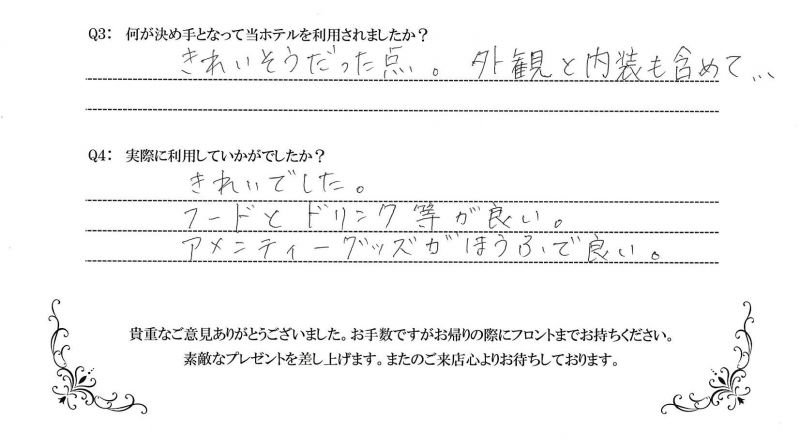 Q3: 何が決め手となって当ホテルを利用されましたか?
きれいそうだった点。外観と内装も含めて...
Q4: 実際に利用していかがでしたか?
きれいでした。
フードとドリンク等が良い。
アメニティーグッズがほうふで良い。
貴重なご意見ありがとうございました。お手数ですがお帰りの際にフロントまでお持ちください。
素敵なプレゼントを差し上げます。またのご来店心よりお待ちしております。